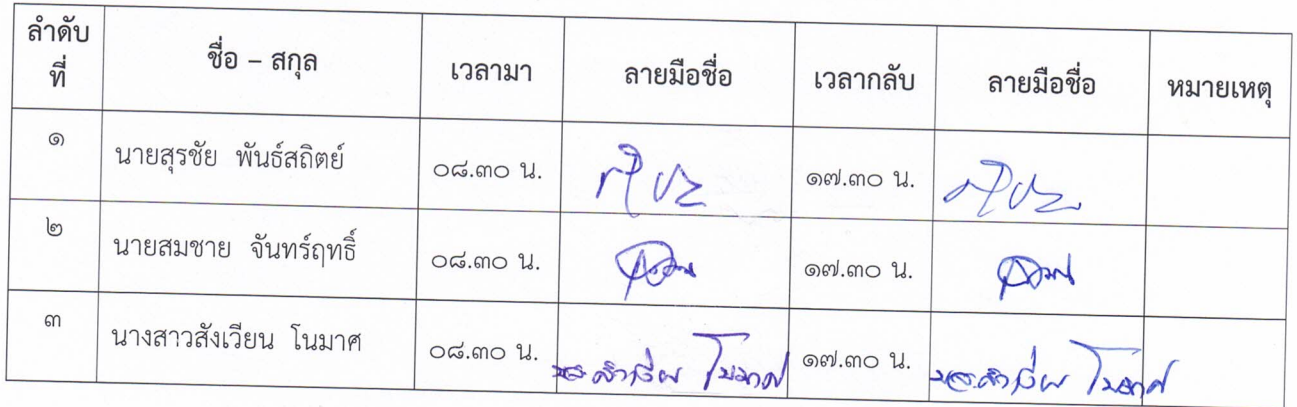 ลำดับ
ที่
ชื่อ – สกุล
เวลามา
ลายมือชื่อ
เวลากลับ
ลายมือชื่อ
หมายเหตุ
๑ นายสุรชัย พันธ์สถิตย์ ๐๘.๓๐ น. ๑๗.๓๐ น.
๒ นายสมชาย จันทร์ฤทธิ์ ๐๘.๓๐ น. ๑๗.๓๐ น.
๓ นางสาวสังเวียน โนมาศ ๐๘.๓๐ น. โนมาศ ๑๗.๓๐ น. โนมาศ